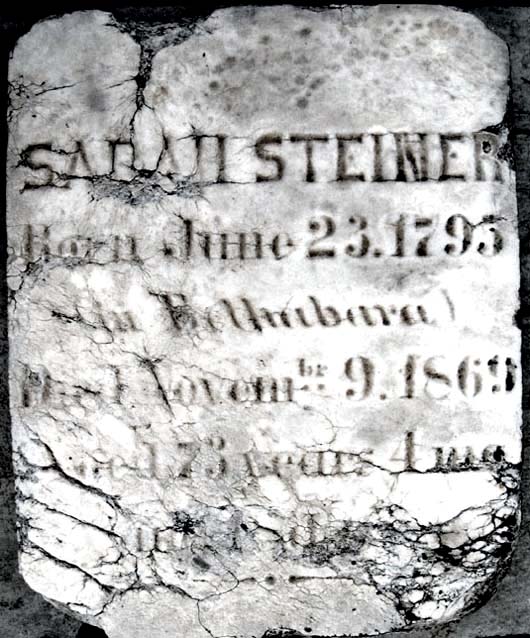 SARAH STEINER
Born June 23.1795
(in Bethabara)
Died Novem^br 9.1869
aged 73 years 4 mo
and